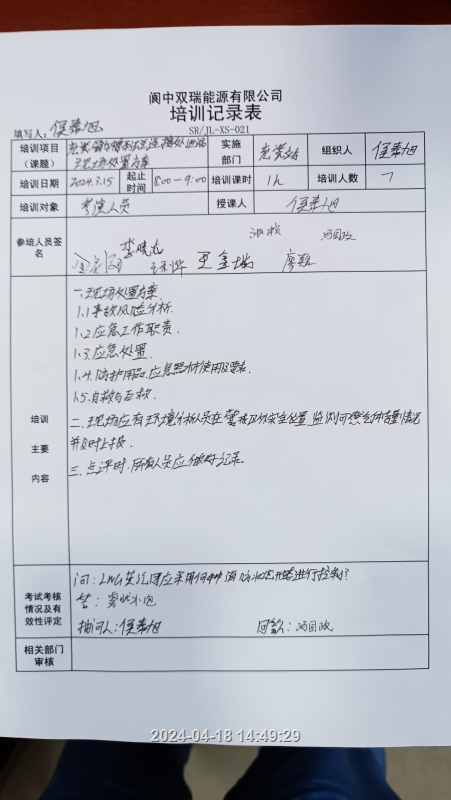 阆中双瑞能源有限公司
培训记录表
SR/JL-XS-021
填写人：侯荣旭
培训项目（课题） 充装 连接处泄漏
现场处置方案
实施部门 充装站 组织人 侯荣旭
培训日期 2024.3.15 起止时间 8:00-9:00 培训课时 1h 培训人数 7
培训对象 参演人员 授课人 侯荣旭
参培人员签名
李晓龙
廖
培训主要内容
一、现场处置方案
1.1 事故风险分析.
1.2 应急工作职责.
1.3. 应急处置.
1.4. 防护用品、应急器材使用及要求.
1.5. 自救与互救.
二、现场应有环境分析人员在警戒区外安全位置,监测可燃气体含量情况
并及时上报.
三、点评时,所有人员应做好记录.
考试考核情况及有效性评定
问：LNG 泄漏应采用何种消防 进行控制?
答：雾状水炮
提问人：侯荣旭 回答：冯国政
相关部门审核
2024-04-18 14:49:29